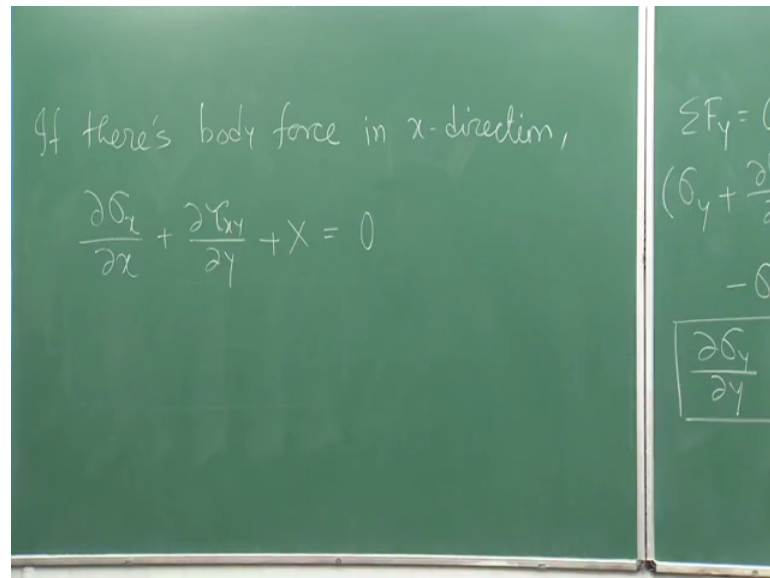 If there's body force in x-direction,
∂σx/∂x + ∂τxy/∂y + X = 0
ΣFy =
(σy + ∂
- σ
∂σy/∂y